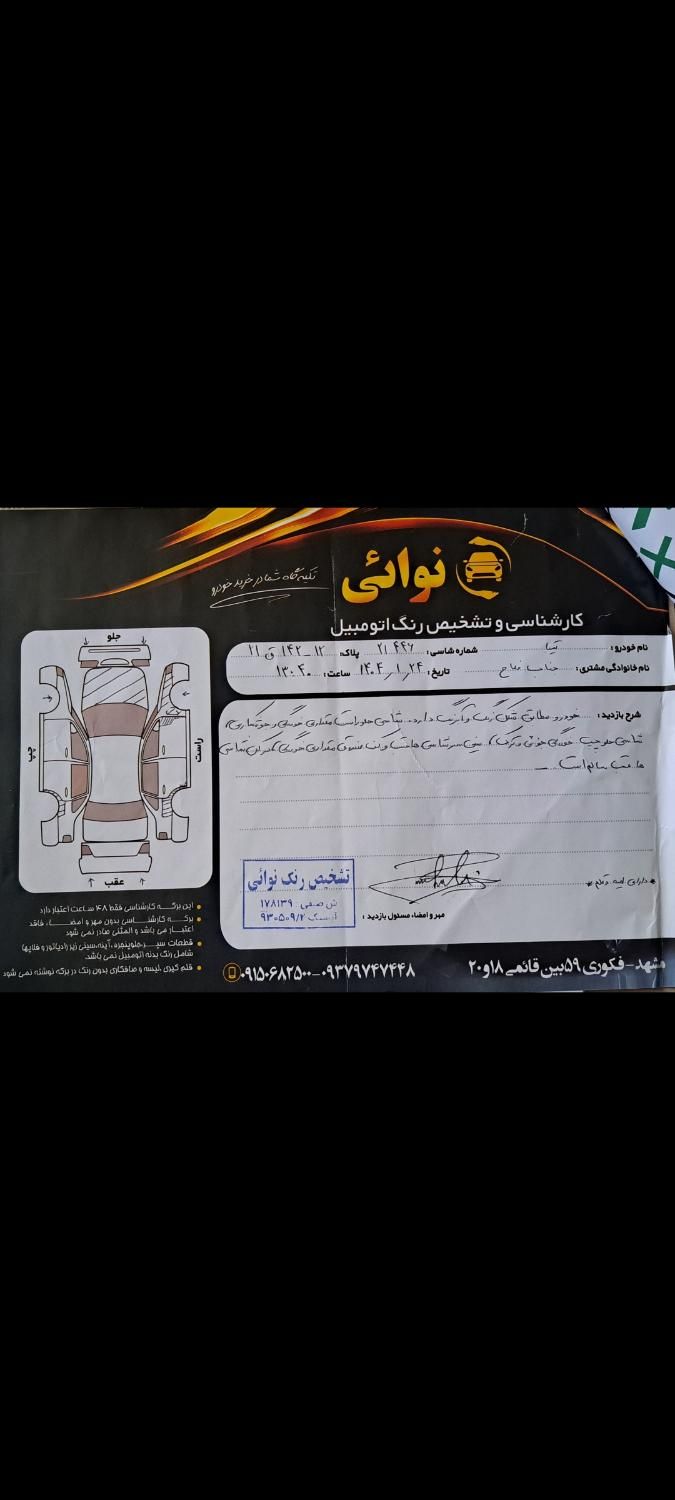 نوائی
تکیه گاه شما در خرید خودرو
کارشناسی و تشخیص رنگ اتومبیل
نام خودرو: تیبا شماره شاسی: ۲۱۴۴۶ پلاک: ۱۲ - ۱۴۲ ق ۲۱
نام خانوادگی مشتری: جناب فلاح تاریخ: ۱۴۰۴/۱/۲۴ ساعت: ۱۳:۴۰
شرح بازدید: خودرو مطابق شکل رنگ و آثار رنگ دارد. شاسی جلو راست مقداری خوردگی و
شاسی جلو چپ خوردگی جوش و ترک، سینی سرشاسی عقب و کف صندوق مقداری خوردگی
عقب سالم است
* دارای لیسه و قلم *
مهر و امضاء مسئول بازدید:
تشخیص رنگ نوائی
ش صنفی: ۱۷۸۱۳۹
آیسیک ۹۳۰۵۰۹/۲
جلو
چپ
راست
عقب
این برگه کارشناسی فقط ۴۸ ساعت اعتبار دارد
برگه کارشناسی بدون مهر و امضاء، فاقد
اعتبار می باشد و المثنی صادر نمی شود
قطعات سپر، جلوپنجره، آینه، سینی زیر رادیاتور و فلاپها
شامل رنگ بدنه اتومبیل نمی باشد
قلم گیری، لیسه و صافکاری بدون رنگ در برگه نوشته نمی شود
مشهد - فکوری ۵۹ بین قائمی ۱۸ و ۲۰
۰۹۱۵۰۶۸۲۵۰۰ - ۰۹۳۷۹۷۴۷۴۴۸